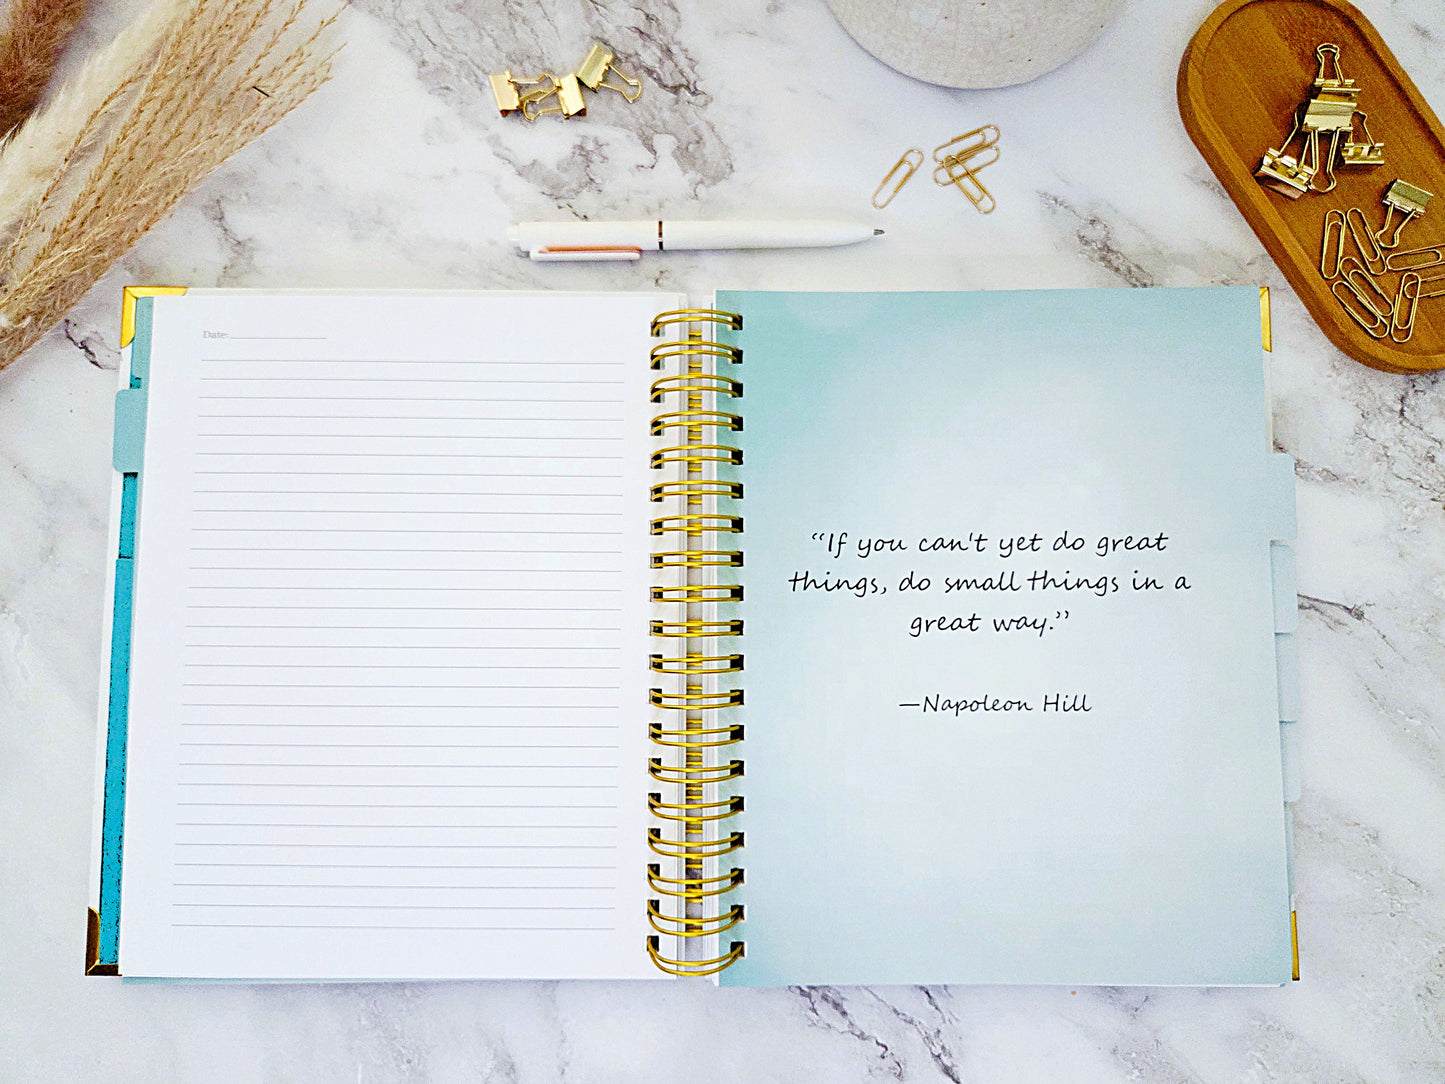 Date:
“If you can't yet do great
things, do small things in a
great way.”
—Napoleon Hill